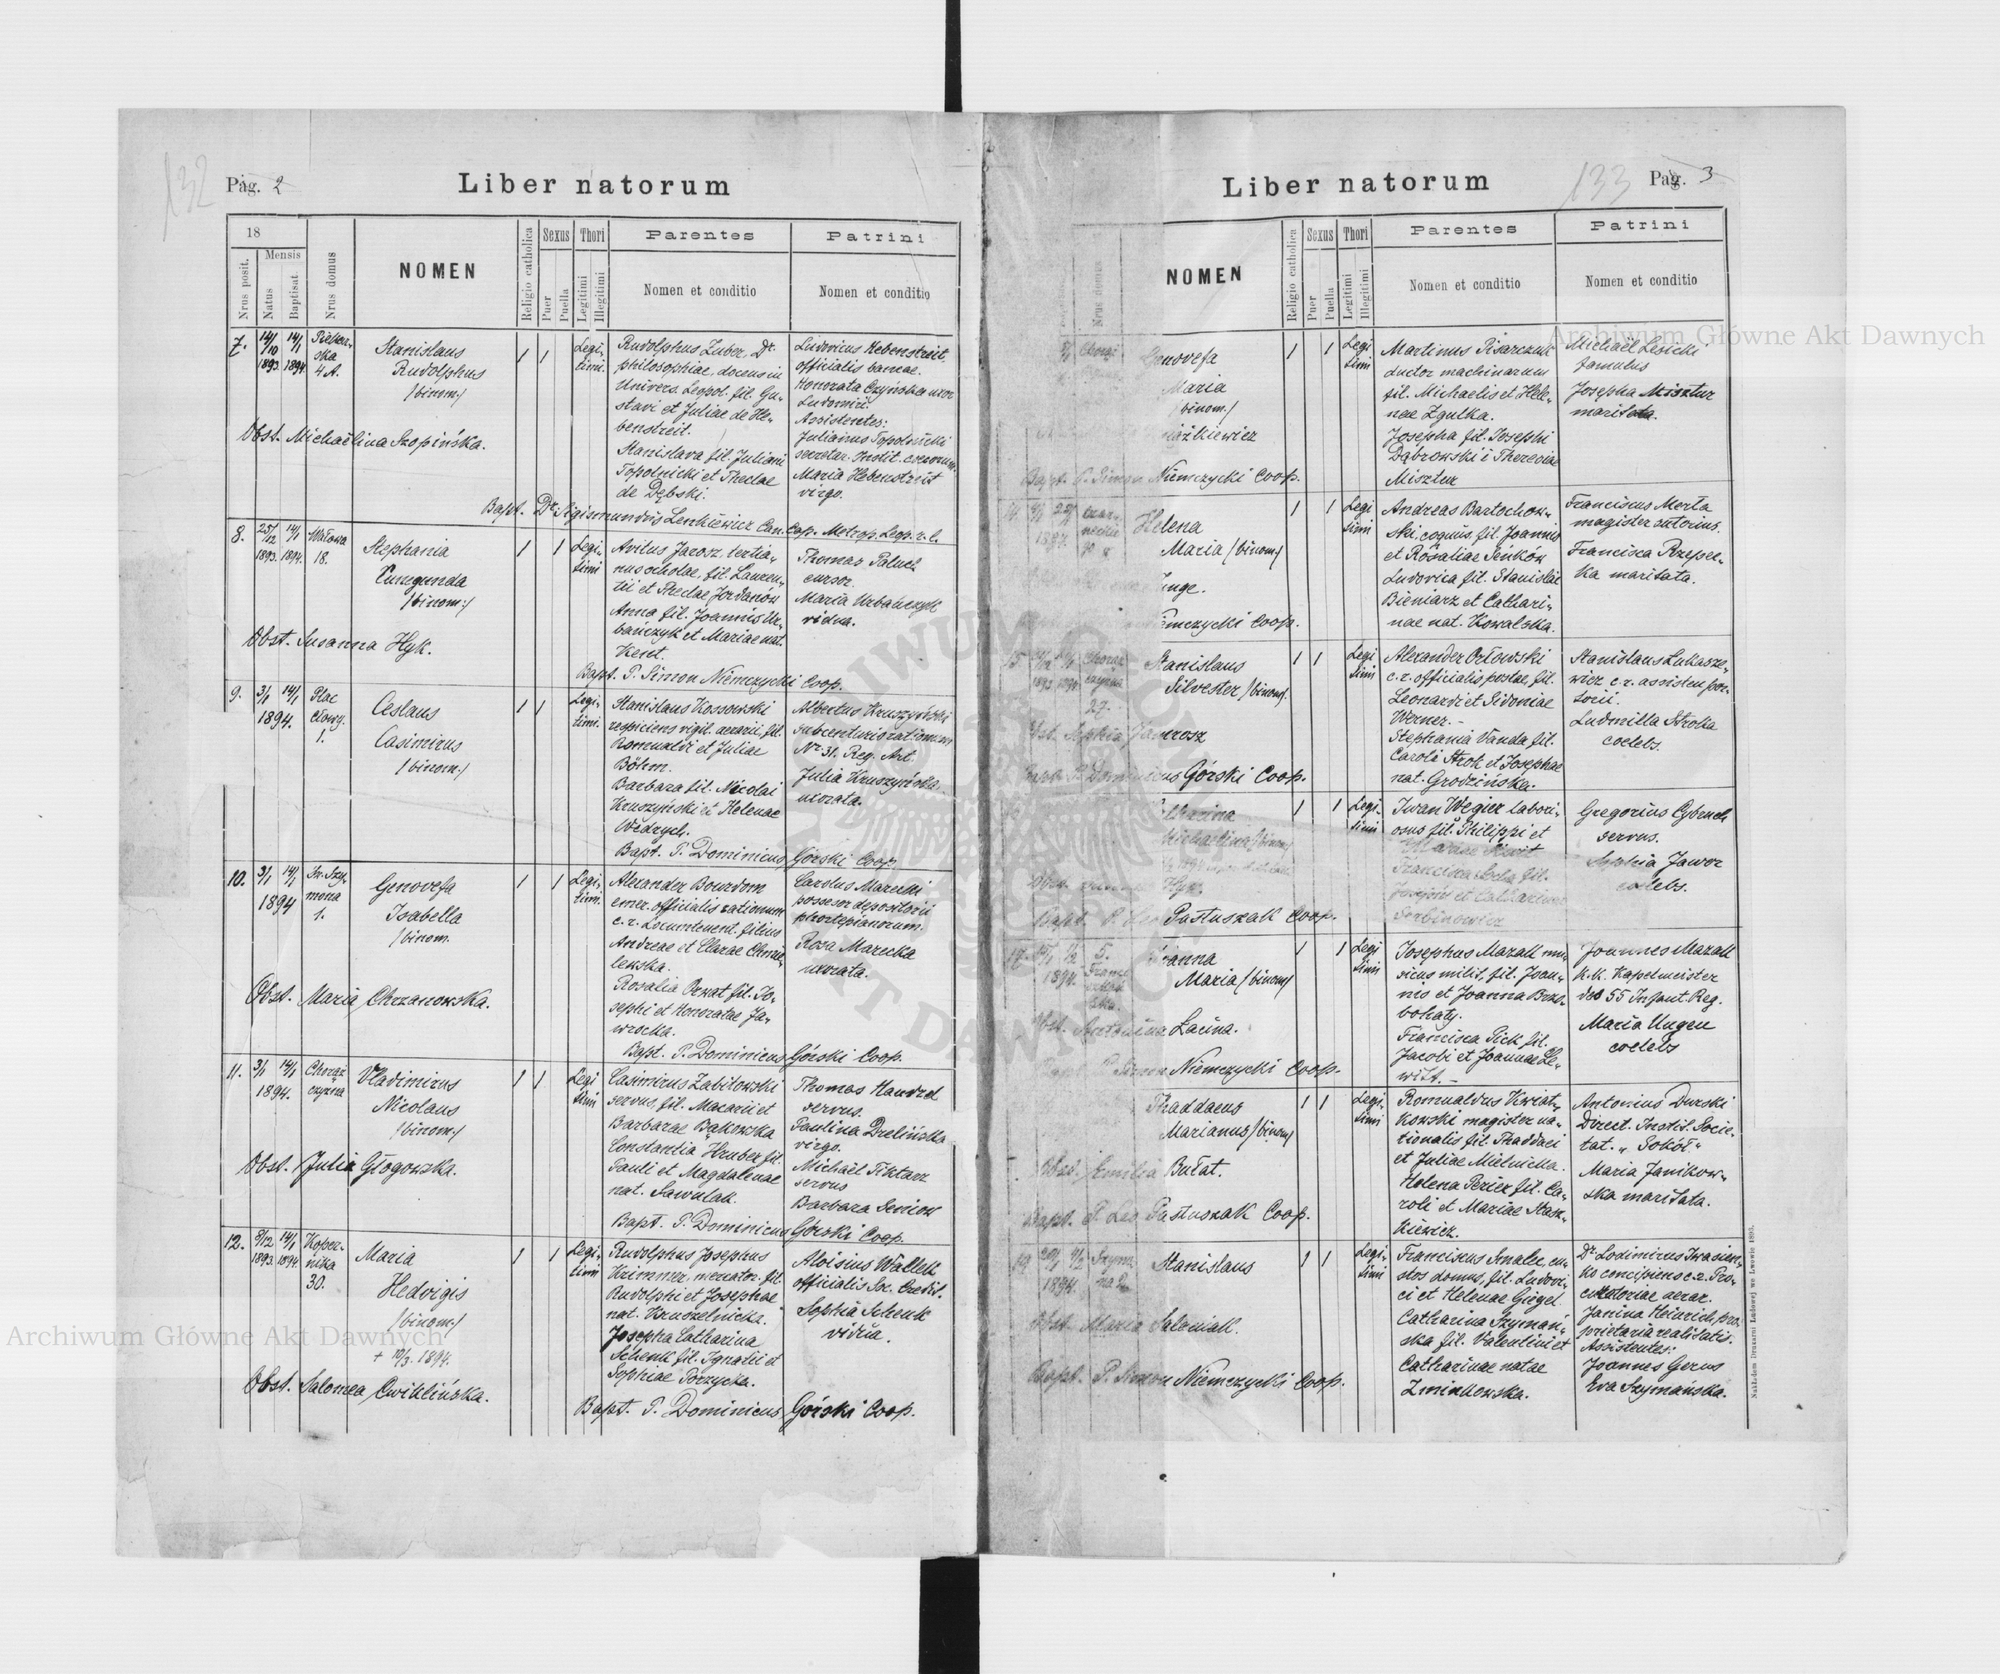 132
Pag. 2
Liber natorum
18
Mensis
Nrus posit.
Natus
Baptisat.
Nrus domus
NOMEN
Religio catholica
Sexus
Puer
Puella
Thori
Legitimi
Illegitimi
Parentes
Nomen et conditio
Patrini
Nomen et conditio
7. 14/10 1893. 14/1 1894
4 A.
Stanislaus
Rudolphus
/binom./
Obst. Michaëlina Szopińska.
1 1
Legi-
timi.
Rudolphus Zuber, Dr.
philosophiae, docens in
Univers. Leopol. fil. Gu-
stavi et Juliae de He-
benstreit.
Stanislava fil. Juliani
Topolnicki et Theclae
de Dębski.
Ludovicus Hebenstreit
officialis bancae.
Honorata Czyńska uxor
Ludomiri.
Assistentes:
Julianus Topolnicki
secretar. Instit.
Maria Hebenstreit
virgo.
Bapt. Dr. Sigismundus Lenkiewicz Can. Cap. Metrop. Leop. r. l.
8. 25/12 1893. 14/1 1894.
Wałowa
18.
Stephania
Cunegunda
/binom./
Obst. Susanna Hyk.
1 1
Legi-
timi
Avitus Jarosz tertia-
nus scholae, fil. Lauren-
tii et Theclae Jordanów
Anna fil. Joannis Ur-
bańczyk et Mariae nat.
Kent.
Thomas Paluch
cursor.
Maria Urbańczyk
vidua.
Bapt. P. Simon Niemczycki Coop.
9. 3/1 14/1
1894.
Plac
Cłowy.
1.
Ceslaus
Casimirus
/binom./
1 1
Legi-
timi.
Stanislaus Kossowski
respiciens vigil. aerarii, fil.
Romualdi et Juliae
Böhm.
Barbara fil. Nicolai
Kruszyński et Helenae
Wędrych.
Albertus Kruszyński
subcenturio rationum
Nr. 31. Reg. Art.
Julia Kruszyńska,
uxorata.
Bapt. P. Dominicus Górski Coop.
10. 3/1 14/1
1894
Sw. Szy-
mona
1.
Genovefa
Isabella
/binom.
Obst. Maria Chrzanowska.
1 1
Legi-
timi.
Alexander Bourdom
emer. officialis rationum
c. r. Locumtenent. filius
Andreae et Clarae Chmie-
lewska.
Rosalia Orwat fil. Jo-
sephi et Honoratae Ja-
wrocka.
Carolus Marecki
possesor depositorii
phortepianorum.
Rosa Marecka
uxorata.
Bapt. P. Dominicus Górski Coop.
11. 3/1 14/1
1894.
Chorąż
czyzna
Vladimirus
Nicolaus
/binom./
Obst. Julia Głogowska.
1 1
Legi
timi
Casimirus Zabiłowski
servus, fil. Macarii et
Barbarae Bąkowska
Constantia Hruber fil.
Pauli et Magdalenae
nat. Sawulak.
Thomas Handzel
servus.
Paulina Drelińska
virgo.
Michaël Tiktarz
servus
Barbara Seniow
Bapt. P. Dominicus Górski Coop.
12. 8/12 1893. 14/1 1894
Koper-
nika
30.
Maria
Hedvigis
/binom./
+ 10/3. 1894.
Obst. Salomea Cwiklińska.
1 1
Legi-
timi
Rudolphus Josephus
Krimmer, mercator. fil.
Rudolphi et Josephae
nat. Kruszelnicka.
Josepha Catharina
Schenk fil. Ignatii et
Sophiae Porzycka.
Aloisius Wallek
officialis Soc. Credit.
Sophia Schenk
vidua.
Bapt. P. Dominicus Górski Coop.
133
Pag. 3
Liber natorum
Nrus domus
NOMEN
Religio catholica
Sexus
Puer
Puella
Thori
Legitimi
Illegitimi
Parentes
Nomen et conditio
Patrini
Nomen et conditio
Genovefa
Maria
/binom./
Bapt. P. Simon Niemczycki Coop.
1 1
Legi
timi
Martinus Pisarczuk
ductor machinarum
fil. Michaelis et Hele-
nae Zgulka.
Josepha fil. Josephi
Dąbrowski i Theresiae
Misztur
Michaël Lesicki
famulus
Josepha Misztur
maritata.
Helena
Maria /binom/
1 1
Legi
timi
Andreas Bartochow-
ski, coquus, fil. Joannis
et Rosaliae Seńków
Ludovica fil. Stanislai
Bieniarz et Cathari-
nae nat. Kowalska.
Franciscus Merta
magister sutorius.
Francisca Rzepec-
ka maritata.
Niemczycki Coop.
15
27.
Stanislaus
Silvester /binom/
Obst. Sophia Jamrosz
Bapt. P. Dominicus Górski Coop.
1 1
Legi
timi
Alexander Orłowski
c. r. officialis postae, fil.
Leonardi et Sidoniae
Werner. -
Stephania Vanda fil.
Caroli Strok et Josephae
nat. Grodzińska.
Stanislaus Łukasze-
wicz c. r. assistens por-
torii.
Ludmilla Stroka
coelebs.
Catharina
Michaëlina /binom/
Hyk.
Bapt. P. Leo Pastuszak Coop.
1 1
Legi-
timi
Iwan Węgier labori-
osus fil. Philippi et
Francisca fil.
Josephi et Catharinae
Serbinowicz
Gregorius Cybruch
servus.
Sophia Jawor
coelebs.
17. 1/2
1894.
5.
Joanna
Maria /binom/
Obst. Antonina Lacina.
P. Simon Niemczycki Coop.
1 1
Legi
timi
Josephus Mazall mu-
sicus milit, fil. Joan-
nis et Joanna Brzo-
bohaty.
Francisca Pick fil.
Jacobi et Joannae Le-
witt. -
Joannes Mazall
K. K. Kapelmeister
des 55 Infant. Reg.
Maria Ungeu
coelebs
Thaddaeus
Marianus /binom/
Obst. Emilia Bułat.
Bapt. P. Leo Pastuszak Coop.
1 1
Legi-
timi
Romualdus Kwiat-
kowski magister na-
tionalis fil. Thaddaei
et Juliae Mielnicka.
Helena Perier fil. Ca-
roli et Mariae Stasz-
kiewicz.
Antonius Durski
Direct. Instit. Socie-
tat. „Sokół"
Maria Janikow-
ska maritata.
19
1894.
Stanislaus
Obst. Maria Saloniak.
Bapt. P. Simon Niemczycki Coop.
1 1
Legi-
timi
Franciscus Smalec, cu-
stos domus, fil. Ludovi-
ci et Helenae Giegel
Catharina Szymań-
ska fil. Valentini et
Catharinae natae
Zminkowska.
Dr. Lodimirus Iwasien-
ko concipiens c. r. Pro-
curatoriae aerar.
Janina Heinrich, pro-
prietaria realitatis.
Assistentes:
Joannes Gerus
Eva Szymańska.
Nakładem Drukarni Ludowej we Lwowie 1893.
Archiwum Główne Akt Dawnych
Archiwum Główne Akt Dawnych